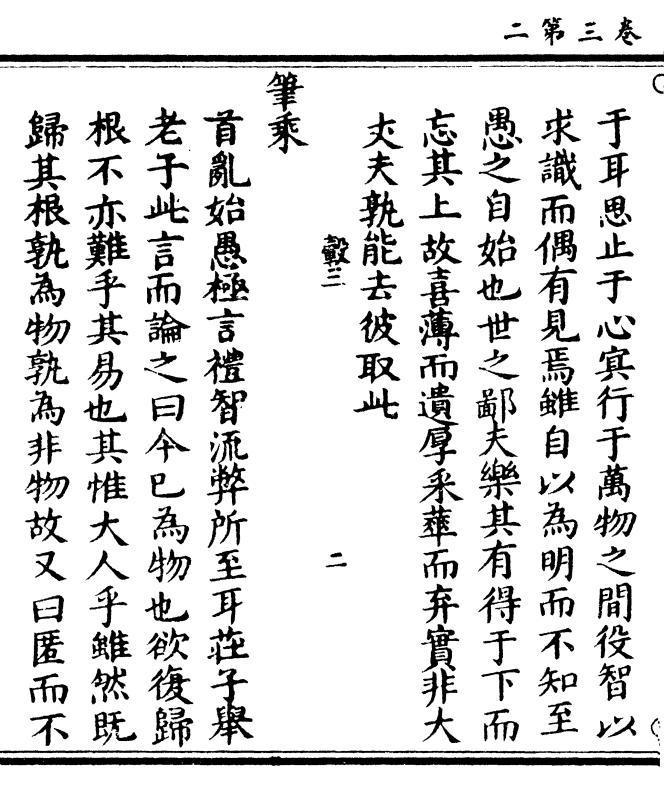 卷三第二
于耳思止于心㝠行于萬物之間役智以
求識而偶有見焉雖自以為明而不知至
愚之自始也世之鄙夫樂其有得于下而
忘其上故喜薄而遺厚采華而弃實非大
丈夫孰能去彼取此
㲉三 二
筆乘
首亂始愚極言禮智流弊所至耳莊子舉
老子此言而論之曰今已為物也欲復歸
根不亦難乎其易也其惟大人乎雖然既
歸其根孰為物孰為非物故又曰匿而不